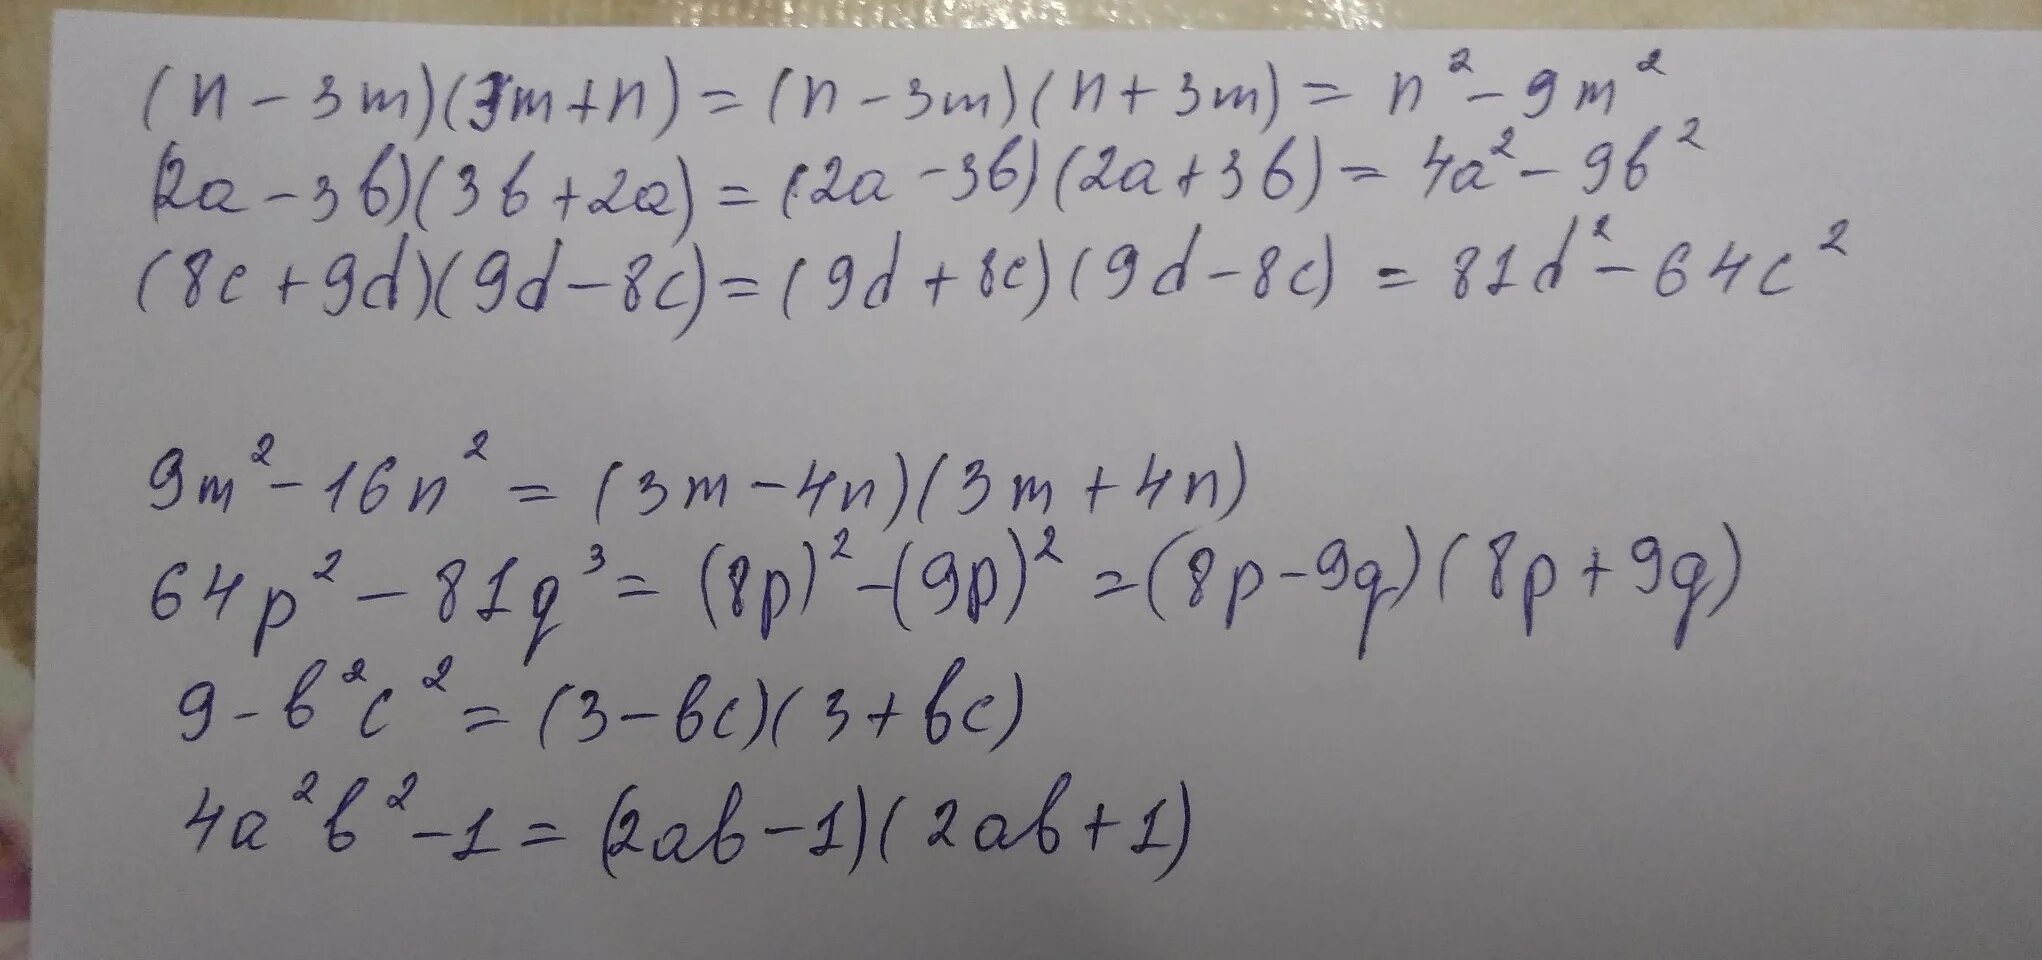 (n - 3m)(3m + n) = (n - 3m)(n + 3m) = n² - 9m²
(2a - 3b)(3b + 2a) = (2a - 3b)(2a + 3b) = 4a² - 9b²
(8c + 9d)(9d - 8c) = (9d + 8c)(9d - 8c) = 81d² - 64c²
9m² - 16n² = (3m - 4n)(3m + 4n)
64p² - 81q³ = (8p)² - (9p)² = (8p - 9q)(8p + 9q)
9 - b²c² = (3 - bc)(3 + bc)
4a²b² - 1 = (2ab - 1)(2ab + 1)